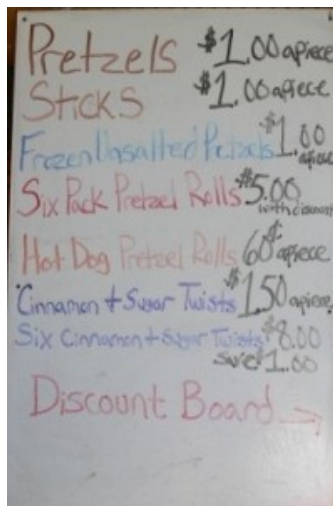 Pretzels $1.00 apiece
Sticks $1.00 apiece
Frozen Unsalted Pretzels $1.00 apiece
Six Pack Pretzel Rolls $5.00
with discount
Hot Dog Pretzel Rolls 60¢ apiece
Cinnamon + Sugar Twists $1.50 apiece
Six Cinnamon + Sugar Twists $8.00
save $1.00
Discount Board